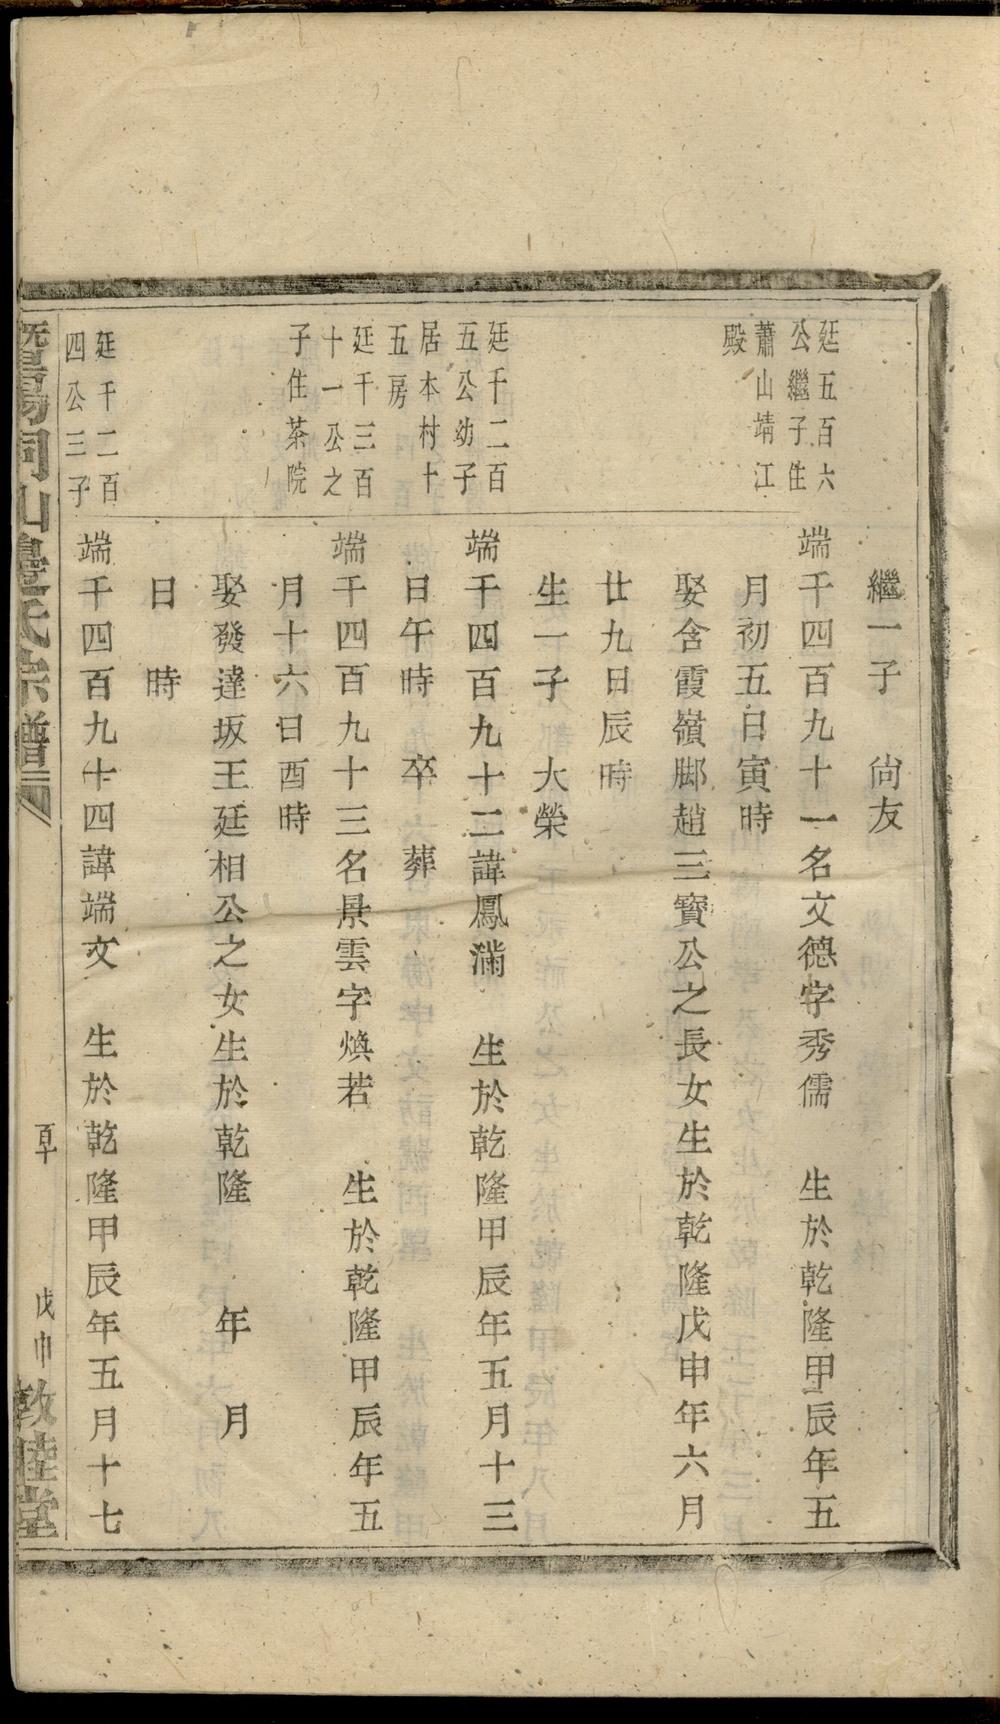 繼一子　尙友
廷五百六
公繼子住
蕭山靖江
殿
端千四百九十一名文德字秀儒　生於乾隆甲辰年五
月初五日寅時
娶含霞嶺脚趙三寶公之長女生於乾隆戊申年六月
廿九日辰時
生一子　大榮
廷千二百
五公幼子
居本村十
五房
端千四百九十二諱鳳滿　生於乾隆甲辰年五月十三
日午時　卒　葬
廷千三百
十一公之
子住茶院
端千四百九十三名景雲字煥若　生於乾隆甲辰年五
月十六日酉時
娶發達坂王廷相公之女生於乾隆　年　月
日　時
廷千二百
四公三子
端千四百九十四諱端文　生於乾隆甲辰年五月十七
暨陽同山邊氏宗譜
敦睦堂